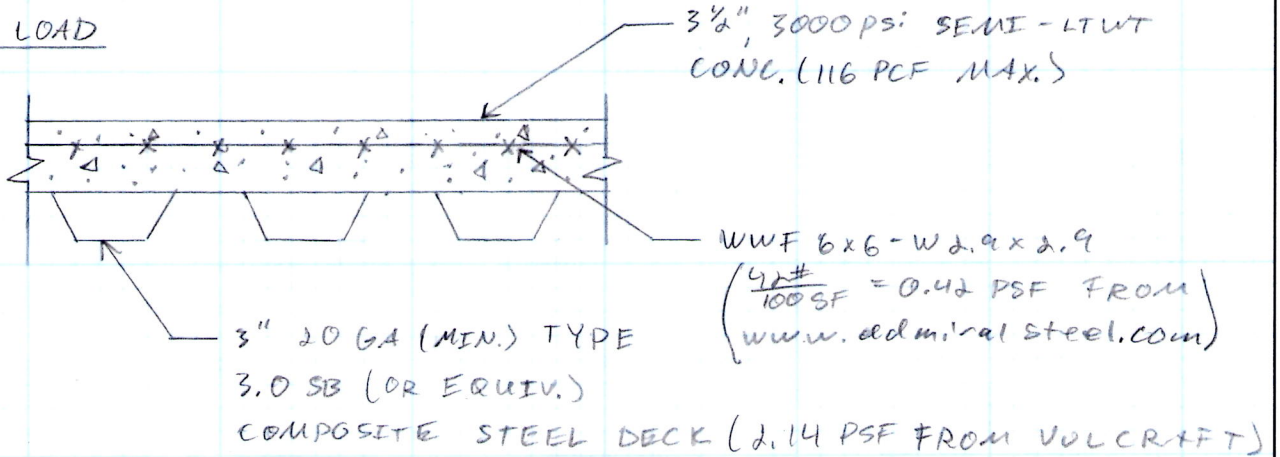 LOAD
3½", 3000 psi SEMI-LTWT
CONC. (116 PCF MAX.)
WWF 6x6-W2.9x2.9
(42#/100 SF = 0.42 PSF FROM
www.admiralsteel.com)
3" 20 GA (MIN.) TYPE
3.0 SB (OR EQUIV.)
COMPOSITE STEEL DECK (2.14 PSF FROM VULCRAFT)